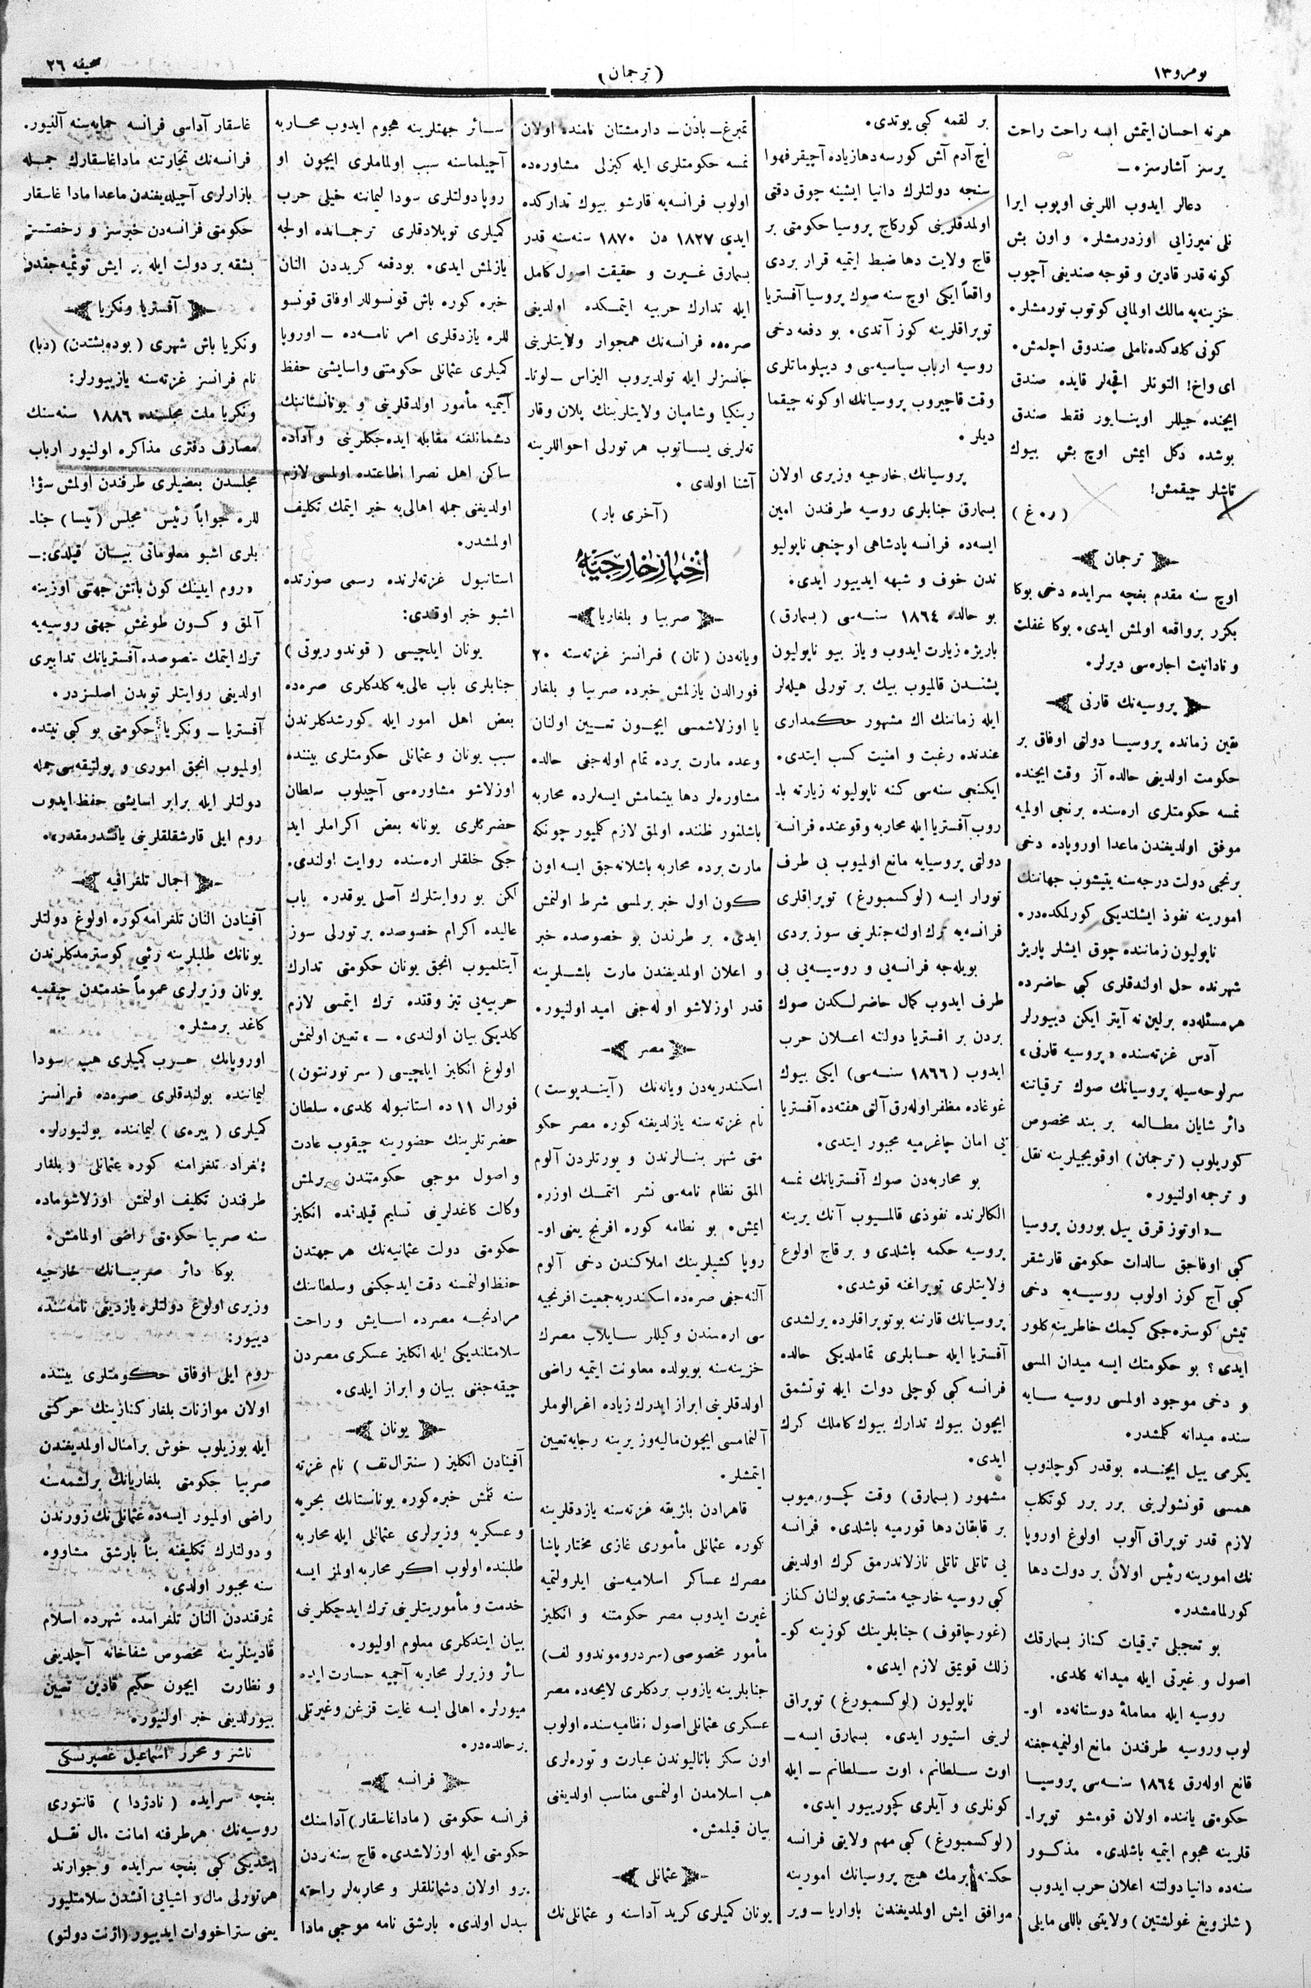 نومرو ۱۳
(ترجمان)
صحیفه ۲۶
هرنه احسان ایتمش ایسه راحت راحت
یرسز آشارسز. ـ
دعالر ایدوب اللرنی اوپوب ایرا
تلی میرزایی اوزدرمشلر. و اون بش
کونه قدر قادین و قوجه صندیغی آچوب
خزینه‌یه مالك اولمایی کوتوب تورمشلر.
کونی کلدکده ناملی صندوق اچلمش.
ای واخ! التونلر اقچه‌لر قایده صندق
ایچنده جیللر اوینایور فقط صندق
بوشده دکل ایمش اوچ بش بیوك
تاشلر چیقمش!
(ر. غ)
ترجمان
اوچ سنه مقدم بغچه سرایده دخی بوکا
بکزر برواقعه اولمش ایدی. بوکا غفلت
و نادانیت اجاره‌سی دیرلر.
پروسیه‌نك قارنی
یقین زمانده پروسیا دولتی اوفاق بر
حکومت اولدیغی حالده آز وقت ایچنده
نمسه حکومتلری اره‌سنده برنجی اولمیه
موفق اولدیغندن ماعدا اوروپاده دخی
برنجی دولت درجه‌سنه یتیشوب جهاننك
امورینه نفوذ ایشلتدیکی کورلمکده‌در.
ناپولیون زماننده چوق ایشلر پاریژ
شهرنده حل اولندقلری کبی حاضرده
هر مسئله‌ده برلین نه آیتر ایکن دییورلر
آدس غزته‌سنده «پروسیه قارنی»
سرلوحه‌سیله پروسیانك صوك ترقیاتنه
دائر شایان مطالعه بر بند مخصوص
کوریلوب (ترجمان) اوقویجیلرینه نقل
و ترجمه اولنیور.
ـ «اوتوز قرق ییل بورون پروسیا
کبی اوفاجق سالدات حکومتی قارشقر
کبی آج کوز اولوب روسیه‌یه دخی
تیش کوستره‌جکی کیمك خاطرینه کلور
ایدی؟ بو حکومتك ایسه میدان المسی
و دخی موجود اولمسی روسیه سایه
سنده میدانه کلمشدر.
یکرمی ییل ایچنده بوقدر کوچلنوب
همسی قونشولرینی برر برر کوتکلب
لازم قدر توپراق آلوب اولوغ اوروپا
نك امورینه رئیس اولان بر دولت دها
کورلمامشدر.
بو تعجبلی ترقیات کناز بسمارقك
اصول و غیرتی ایله میدانه کلدی.
روسیه ایله معاملهٔ دوستانه‌ده او-
لوب وروسیه طرفندن مانع اولنمیه‌جغنه
قانع اوله‌رق ۱۸٦٤ سنه‌سی پروسیا
حکومتی یاننده اولان قومشو توپرا-
قلرینه هجوم ایتمیه باشلدی. مذکور
سنه‌ده دانیا دولتنه اعلان حرب ایدوب
(شلزویغ غولشتین) ولایتنی باللی مایلی
بر لقمه کبی یوتدی.
آچ آدم آش کورسه دها زیاده آچیقر فهوا
سنجه دولتلرك دانیا ایشینه چوق دقتی
اولمدقلرینی کورکاچ پروسیا حکومتی بر
قاچ ولایت دها ضبط ایتمیه قرار بردی
واقعاً ایکی اوچ سنه صوك پروسیا آفستریا
توپراقلرینه کوز آتدی. بو دفعه دخی
روسیه ارباب سیاسیه‌سی و دیپلوماتلری
وقت قاچیروب پروسیانك اوکونه چیقما
دیلر.
پروسیانك خارجیه وزیری اولان
بسمارق جنابلری روسیه طرفندن امین
ایسه‌ده فرانسه پادشاهی اوچنجی ناپولیو
ندن خوف و شبهه ایدییور ایدی.
بو حالده ۱۸٦٤ سنه‌سی (بسمارق)
پاریژه زیارت ایدوب و یاز بیو ناپولیون
پشندن قالمیوب بیك بر تورلی هیله‌لر
ایله زماننك اك مشهور حکمداری
عندنده رغبت و امنیت کسب ایتدی.
ایکنجی سنه‌سی کنه ناپولیونه زیارته با-
روب آفستریا ایله محاربه وقوعنده فرانسه
دولتی پروسیایه مانع اولمیوب بی طرف
تورار ایسه (لوکسمبورغ) توپراقلری
فرانسه‌یه ترك اولنه‌جقلرینی سوز بردی
بویله‌جه فرانسه‌یی و روسیه‌یی بی
طرف ایدوب کمال حاضرلکدن صوك
بردن بر افستریا دولتنه اعلان حرب
ایدوب (۱۸٦٦ سنه‌سی) ایکی بیوك
غوغاده مظفر اوله‌رق آلتی هفته‌ده آفستریا
یی امان چاغرمیه مجبور ایتدی.
بو محاربه‌دن صوك آفستریانك نمسه
الکالرنده نفوذی قالمیوب آنك یرینه
پروسیه حکمه باشلدی و بر قاچ اولوغ
ولایتلری توپراغنه قوشدی.
پروسیانك قارننه بوتوپراقلرده برلشدی
آفستریا ایله حسابلری تماملدیکی حالده
فرانسه کبی کوچلی دولت ایله توتشمق
ایچون بیوك تدارك بیوك کاملك کرك
ایدی.
مشهور (بسمارق) وقت کچورمیوب
بر قاپقان دها قورمیه باشلدی. فرانسه
یی تاتلی تاتلی نازلاندرمق کرك اولدیغی
کبی روسیه خارجیه متستری بولنان کناز
(غورچاقوف) جنابلرینك کوزینه کو-
زلك قویمق لازم ایدی.
ناپولیون (لوکسمبورغ) توپراق
لرینی استیور ایدی. بسمارق ایسه ـ
اوت سلطانم، اوت سلطانم ـ ایله
کونلری و آیلری کچورییور ایدی.
(لوکسمبورغ) کبی مهم ولایتی فرانسه
حکمنه برمك هیچ پروسیانك امورینه
موافق ایش اولمدیغندن باواریا ـ ویر
تمبرغ ـ بادن ـ دارمشتان نامنده اولان
نمسه حکومتلری ایله کیزلی مشاوره‌ده
اولوب فرانسه‌یه قارشو بیوك تدارکده
ایدی ۱۸٦۷ دن ۱۸۷۰ سنه‌سنه قدر
بسمارق غیرت و حقیقت اصول کامل
ایله تدارك حربیه ایتمکده اولدیغی
صره‌ده فرانسه‌نك همجوار ولایتلرینی
جانسزلر ایله تولدیروب الیزاس ـ لوتا-
رینکیا و شامپان ولایتلرینك پلان وقار
ته‌لرینی یساتوب هر تورلی احواللرینه
آشنا اولدی.
(آخری بار)
اخبار خارجیه
صربیا و بلغاریا
ویانه‌دن (تان) فرانسز غزته‌سنه ۲۰
فورالدن یازلمش خبرده صربیا و بلغار
یا اوزلاشمسی ایچون تعیین اولنان
وعده مارت برده تمام اوله‌جغی حالده
مشاوره‌لر دها بیتمامش ایسه‌لرده محاربه
باشلنور ظننده اولمق لازم کلمیور چونکه
مارت برده محاربه باشلانه‌جق ایسه اون
کون اول خبر برلمسی شرط اولنمش
ایدی. بر طرفدن بو خصوصده خبر
و اعلان اولمدیغندن مارت باشلرینه
قدر اوزلاشو اوله‌جغی امید اولنیور.
مصر
اسکندریه‌دن ویانه‌نك (آیندپوست)
نام غزته‌سنه یازلدیغنه کوره مصر حکو
متی شهر بنالرندن و یورتلردن آلوم
المق نظام نامه‌سی نشر ایتمك اوزره
ایمش. بو نظامه کوره افرنج یعنی او-
روپا کشیلرینك املاکندن دخی آلوم
آلنه‌جغی صره‌ده اسکندریه جمعیت افرنجیه
سی اره‌سندن وکیللر سایلاب مصرك
خزینه‌سنه بویولده معاونت ایتمیه راضی
اولدقلرینی ابراز ایدرك زیاده اغرآلوملر
آلنمامسی ایچون مالیه وزیرینه رجایه تعیین
ایتمشلر.
قاهرادن پاریژه غزته‌سنه یازدقلرینه
کوره عثمانلی مأموری غازی مختار پاشا
مصرك عساکر اسلامیه‌سنی ایلرولتمیه
غیرت ایدوب مصر حکومتنه و انکلیز
مأمور مخصوصی (سر دروموندوولف)
جنابلرینه یازوب بردکلری لایحه‌ده مصر
عسکری عثمانلی اصول نظامیه‌سنده اولوب
اون سکز باتالیوندن عبارت و توره‌لری
هب اسلامدن اولنمسی مناسب اولدیغنی
بیان قیلمش.
عثمانلی
یونان کمیلری کرید آداسنه و عثمانلی‌نك
سائر جهتلرینه هجوم ایدوب محاربه
آچیلماسنه سبب اولماملری ایچون او
روپا دولتلری سودا لیماننه خیلی حرب
کمیلری توپلادقلری ترجمانده اولجه
یازلمش ایدی. بودفعه کریددن النان
خبره کوره باش قونسوللر اوفاق قونسو
للره یازدقلری امر نامه‌ده ـ اوروپا
کمیلری عثمانلی حکومتنی واسایشی حفظ
ایتمیه مأمور اولدقلرینی و یونانستاننك
دشمانلغنه مقابله ایده‌جکلرینی و آداده
ساکن اهل نصرا اطاعتده اولمسی لازم
اولدیغنی جمله اهالی‌یه خبر ایتمك تکلیف
اولمشدر.
استانبول غزته‌لرنده رسمی صورتده
اشبو خبر اوقدی:
یونان ایلچیسی (قوندوریوتی)
جنابلری باب عالی‌یه کلدکلری صره‌ده
بعض اهل امور ایله کورشدکلرندن
سبب یونان و عثمانلی حکومتلری بیننده
اوزلاشو مشاوره‌سی آچیلوب سلطان
حضرتلری یونانه بعض اکراملر اید
جکی خلقلر اره‌سنده روایت اولندی.
لکن بو روایتلرك آصلی یوقدر. باب
عالیده اکرام خصوصده بر تورلی سوز
آیتلمیوب انجق یونان حکومتی تدارك
حربیه‌یی تیز وقتده ترك ایتمسی لازم
کلدیکی بیان اولندی. ـ «تعیین اولنمش
اولوغ انکلیز ایلچیسی (سر تورنتون)
فورال ۱۱ ده استانبوله کلدی. سلطان
حضرتلرینك حضورینه چیقوب عادت
و اصول موجبی حکومتندن برلمش
وکالت کاغدلرینی تسلیم قیلدقده انکلیز
حکومتی دولت عثمانیه‌نك هر جهتدن
حفظ اولنمسنه دقت ایدجکنی وسلطاننك
مرادنجه مصرده اسایش و راحت
سلامتلندیکی ایله انکلیز عسکری مصردن
چیقه‌جغنی بیان و ابراز ایلدی.
یونان
آفینادن انکلیز (سنترال نف) نام غزته
سنه کلمش خبره کوره یونانستانك بحریه
و عسکریه وزیرلری عثمانلی ایله محاربه
طلبنده اولوب اکر محاربه اولمز ایسه
خدمت و مأموریتلرینی ترك ایدجکلرینی
بیان ایتدکلری معلوم اولیور.
سائر وزیرلر محاربه آچمیه جسارت ایده
میورلر. اهالی ایسه غایت قزغن و غیرتلی
بر حالده‌در.
فرانسه
فرانسه حکومتی (ماداغاسقار) آداسنك
حکومتی ایله اوزلاشدی. قاچ سنه‌ردن
برو اولان دشمانلقلر و محاربه‌لر راحته
تبدل اولدی. بارشق نامه موجبی مادا
غاسقار آداسی فرانسه حمایه‌سنه آلنیور.
فرانسه‌نك تجارتنه ماداغاسقارك جمله
بازارلری آچیلدیغندن ماعدا مادا غاسقار
حکومتی فرانسه‌دن خبرسز و رخصتسز
بشقه بر دولت ایله بر ایش توتمیه‌جقدر.
آفستریا ونکریا
ونکریا باش شهری (بوده‌پشتدن) (دبا)
نام فرانسز غزته‌سنه یازییورلر:
ونکریا ملت مجلسنده ۱۸۸٦ سنه‌سنك
مصارف دفتری مذاکره اولنیور ارباب
مجلسدن بعضیلری طرفندن اولمش سؤا
للره جواباً رئیس مجلس (تیسا) جنا-
بلری اشبو معلوماتی بیان قیلدی: ـ
«روم ایلینك کون باتش جهتی اوزینه
آلمق و کون طوغش جهتی روسیه‌یه
ترك ایتمك خصوصده آفستریانك تدابیری
اولدیغی روایتلر توبدن اصلسزدر.
آفستریا ـ ونکریا حکومتی بو کبی نیتده
اولمیوب انجق اموری و پولتیقه‌سی جمله
دولتلر ایله برابر اسایشی حفظ ایدوب
روم ایلی قارشقلقلرینی یاتشدرمقدر».
اجمال تلغرافیه
آفینادن النان تلغرامه کوره اولوغ دولتلر
یونانك طلبلرینه رئیی کوسترمدکلرندن
یونان وزیرلری عموماً خدمتدن چیقمیه
کاغد برمشلر.
اوروپانك حرب کمیلری هب سودا
لیماننده بولندقلری صره‌ده فرانسز
کمیلری (پیره‌ی) لیماننده بولنیورلر.
بلغراد تلغرامنه کوره عثمانلی و بلغار
طرفندن تکلیف اولنمش اوزلاشوماده
سنه صربیا حکومتی راضی اولمامش.
بوکا دائر صربیانك خارجیه
وزیری اولوغ دولتلره یازدیغی نامه‌سنده
دییور:
روم ایلی اوفاق حکومتلری بیننده
اولان موازنات بلغار کنازینك حرکتی
ایله بوزیلوب خوش برامثال اولمدیغندن
صربیا حکومتی بلغاریانك برلشمه‌سنه
راضی اولمیور ایسه‌ده عثمانلی‌نك زورندن
و دولتلرك تکلیفنه بناً بارشق مشاوره
سنه مجبور اولدی.
ثمرقنددن النان تلغرامده شهرده اسلام
قادینلرینه مخصوص شفاخانه آچلدیغی
و نظارت ایچون حکیم قادین تعیین
بیورلدیغی خبر اولنیور.
ناشر و محرر اسماعیل غصپرنسکی
بغچه سرایده (نادژدا) قانتوری
روسیه‌نك هر طرفنه امانت مال نقل
ایتدیکی کبی بغچه سرایده و جوارند
هر تورلی مال و اشیایی اتشدن سلامتلیور
یعنی ستراخووات ایدییور (اژنت دولتو)